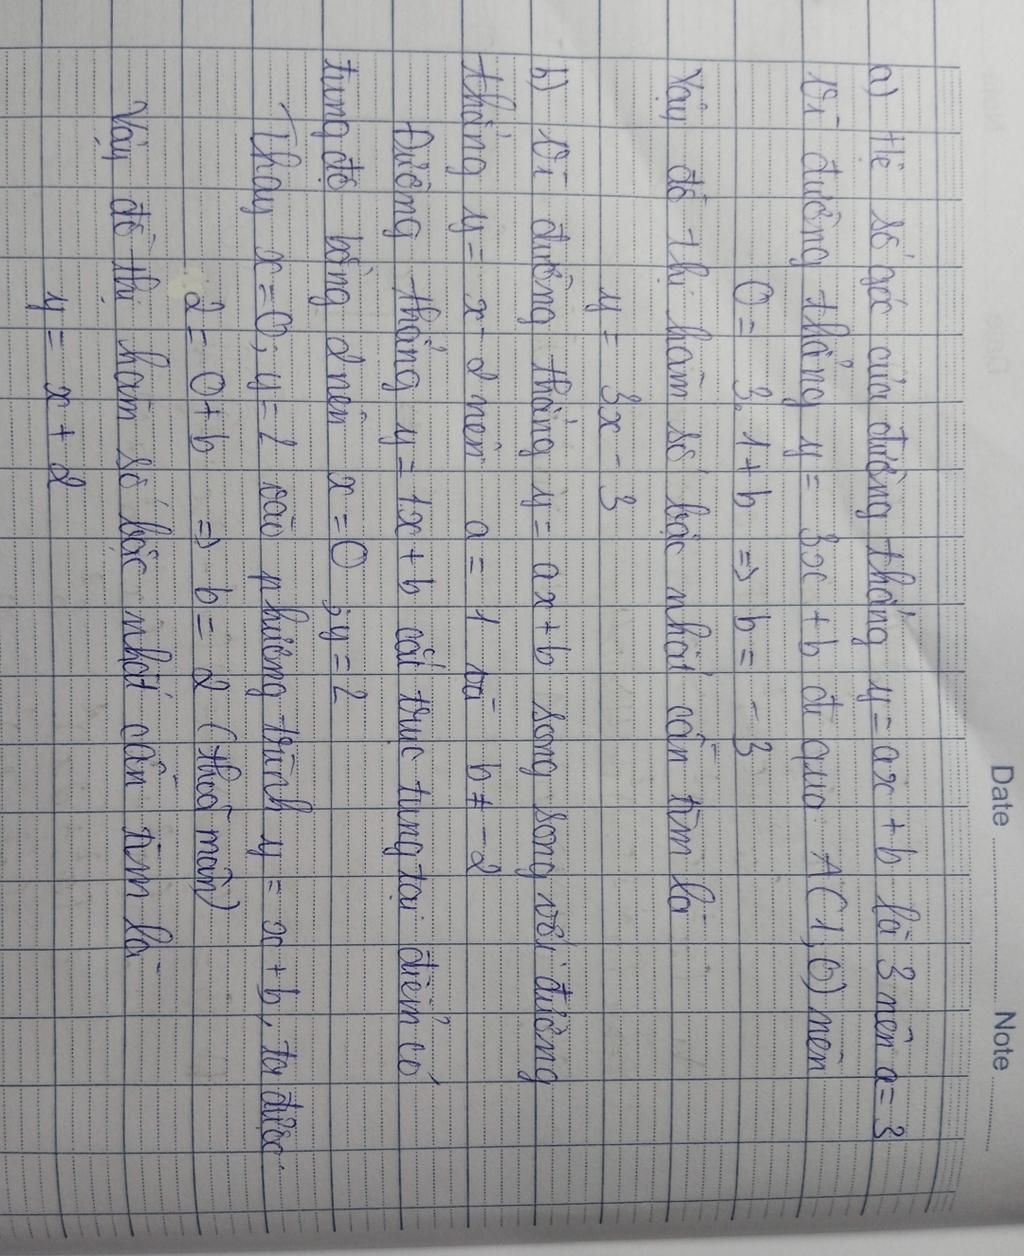 Date Note
a) Hệ số góc của đường thẳng y = ax + b là 3 nên a = 3
Vì đường thẳng y = 3x + b đi qua A(1; 0) nên
0 = 3.1 + b => b = -3
Vậy đồ thị hàm số bậc nhất cần tìm là
y = 3x - 3
b) Vì đường thẳng y = ax + b song song với đường
thẳng y = x - 2 nên a = 1 và b ≠ -2
Đường thẳng y = 1x + b cắt trục tung tại điểm có
tung độ bằng 2 nên x = 0 ; y = 2
Thay x = 0; y = 2 vào phương trình y = x + b, ta được
2 = 0 + b => b = 2 (thoả mãn)
Vậy đồ thị hàm số bậc nhất cần tìm là
y = x + 2